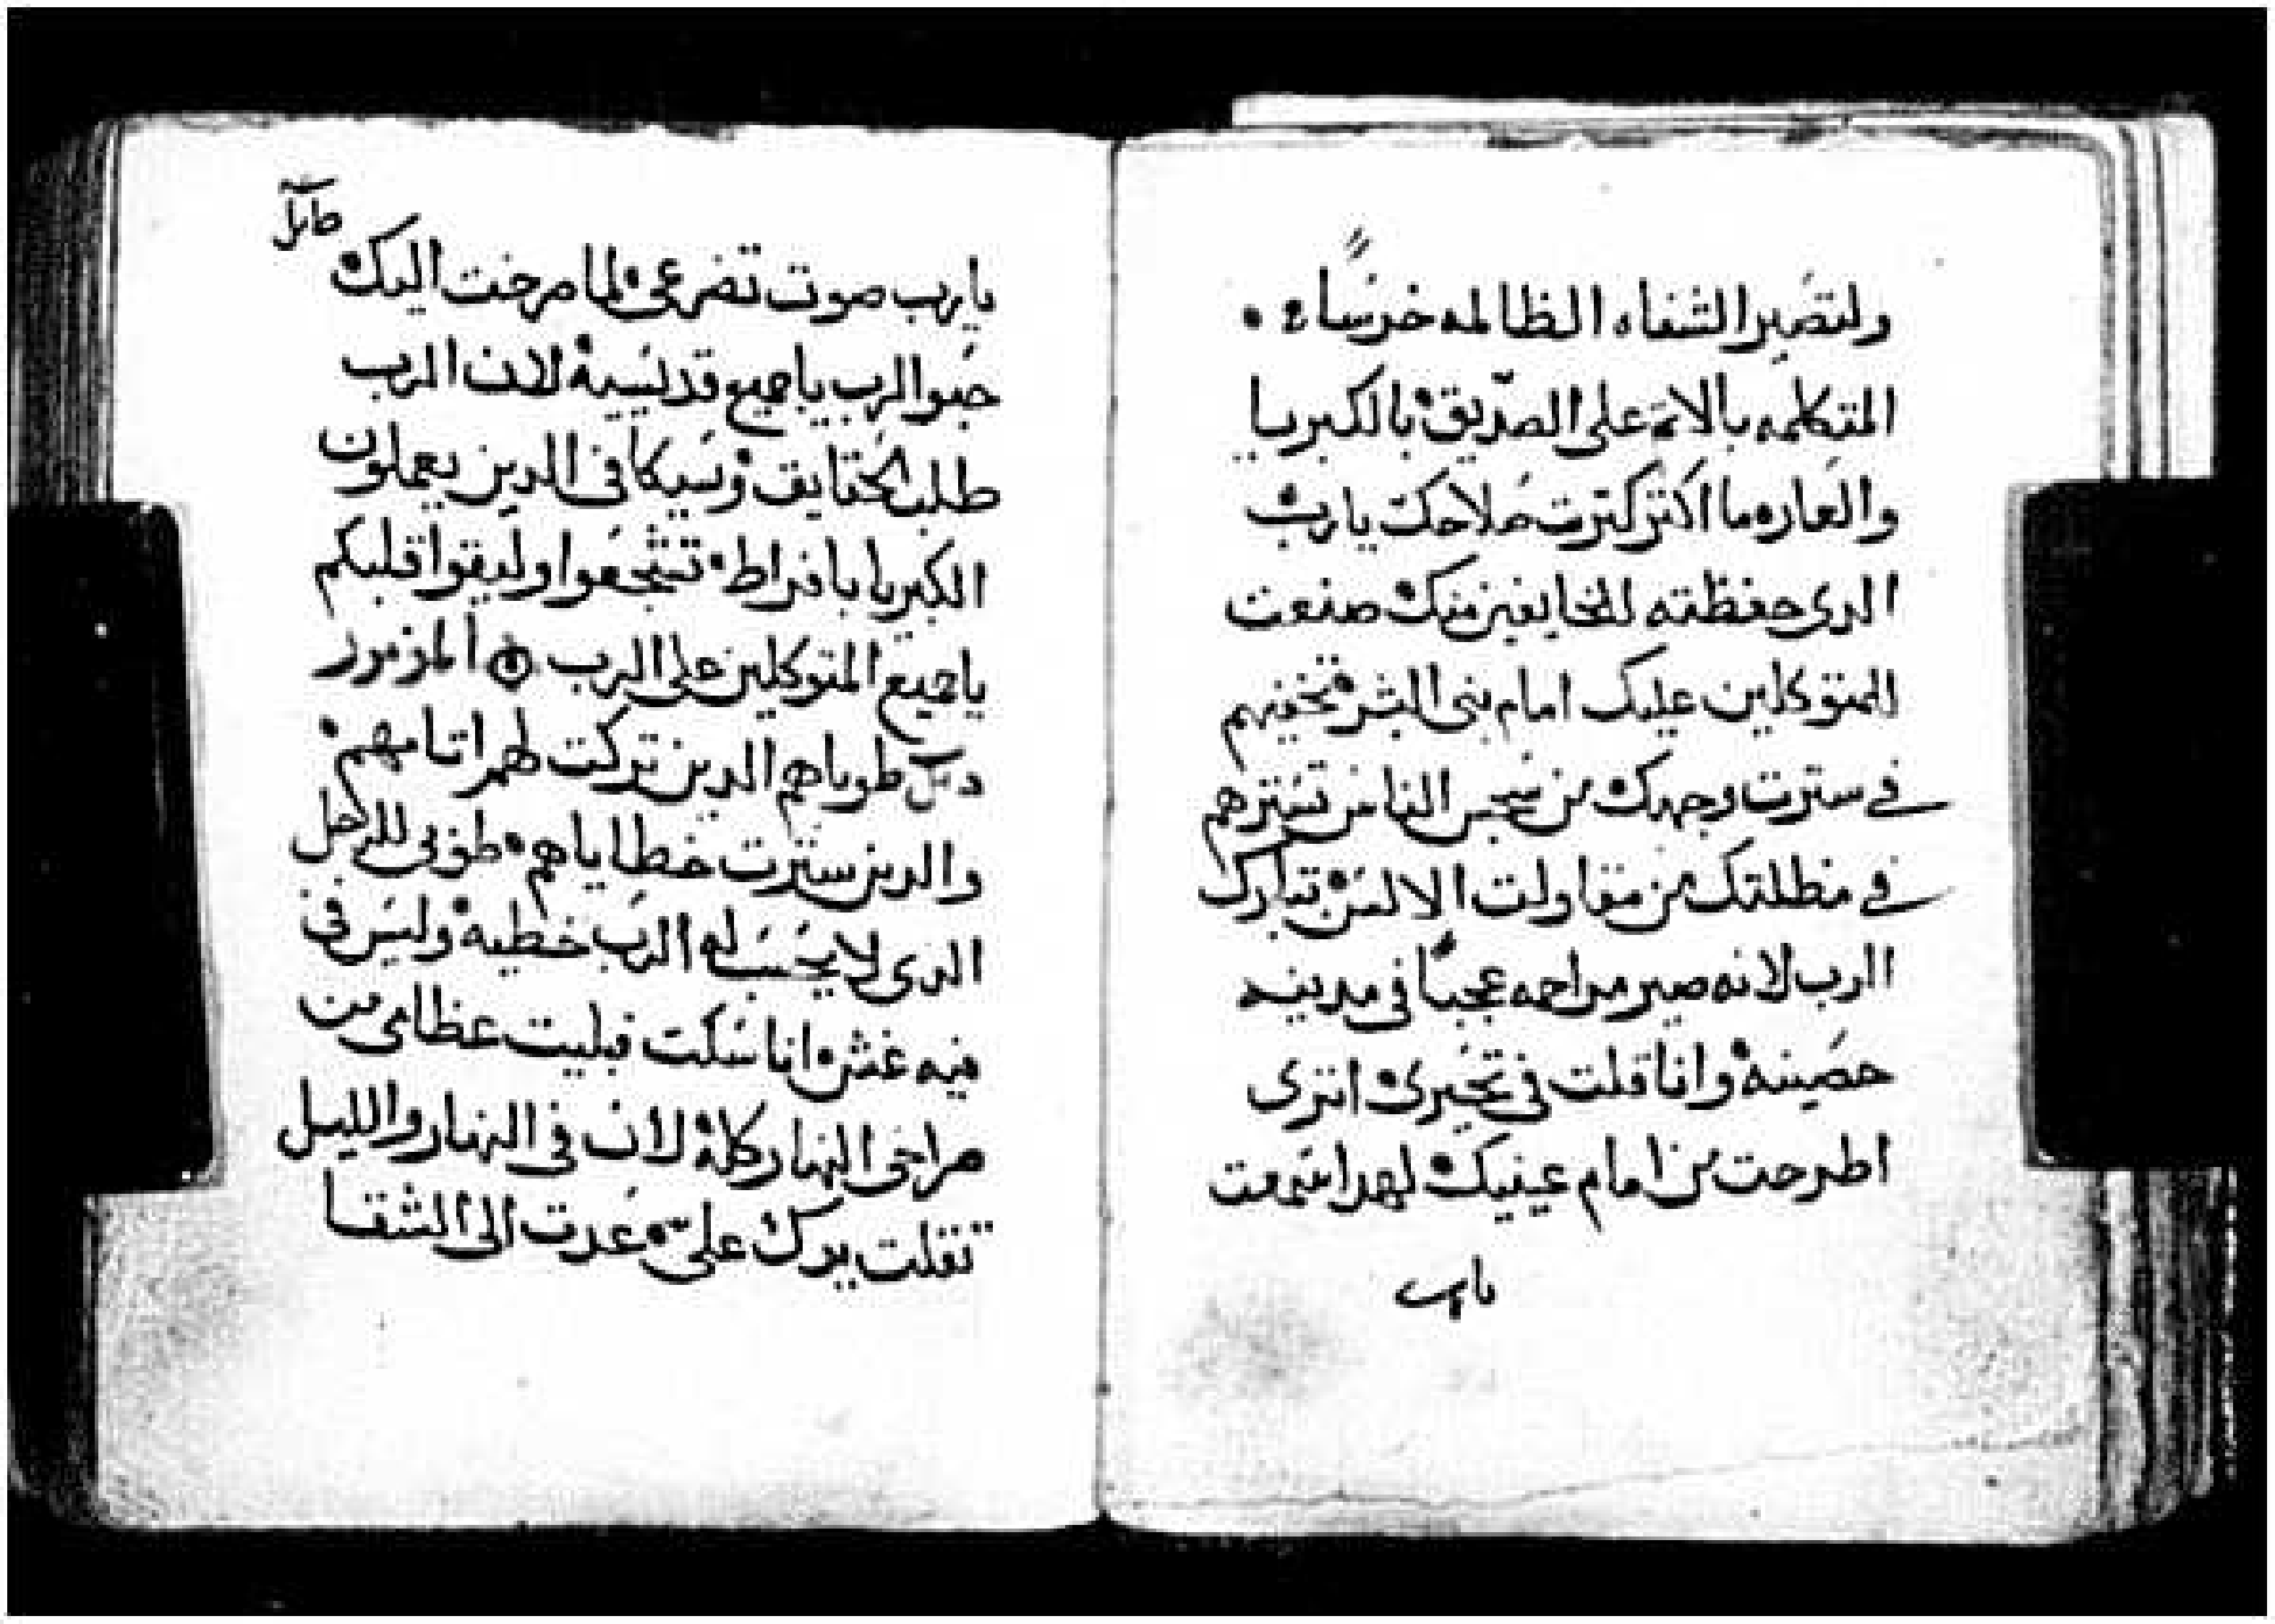 ولتصير الشفاه الظالمه خرسًا ٤ •
المتكلمه بالاثم على الصديق• بالكبريا
والعار• ما اكتر كترت صلاحك يا رب•
الدى حفظته للخايفين منك• صنعت
للمتوكلين عليك امام بنى البشر• تخفيهم
فى سترت وجهك• من سجس الناس تسترهم
فى مظلتك من مقاولت الالسن• تبارك
الرب لانه صير مراحمه عجبًا فى مدينه
حصينه• وانا قلت فى تحيرى• اترى
اطرحت من امام عينيك• لهدا سمعت
يارب
يارب صوت تضرعى• لما صرخت اليك•
حبو الرب يا جميع قديسيه• لان الرب
طلب الحقايق• وسيكافى الدين يعملون
الكبريا بافراط• تشجعوا وليقوا قلبكم
يا جميع المتوكلين على الرب المزمور
طوباهم الدين تركت لهم اتامهم•
والدين سترت خطاياهم• طوبى للرجل
الدى لا يحسب له الرب خطيه• وليس فى
فيه غش• انا سكت فبليت عظامى من
صراخى النهار كله• لان فى النهار والليل
تقلت يدك علىّ• عدت الى الشقا